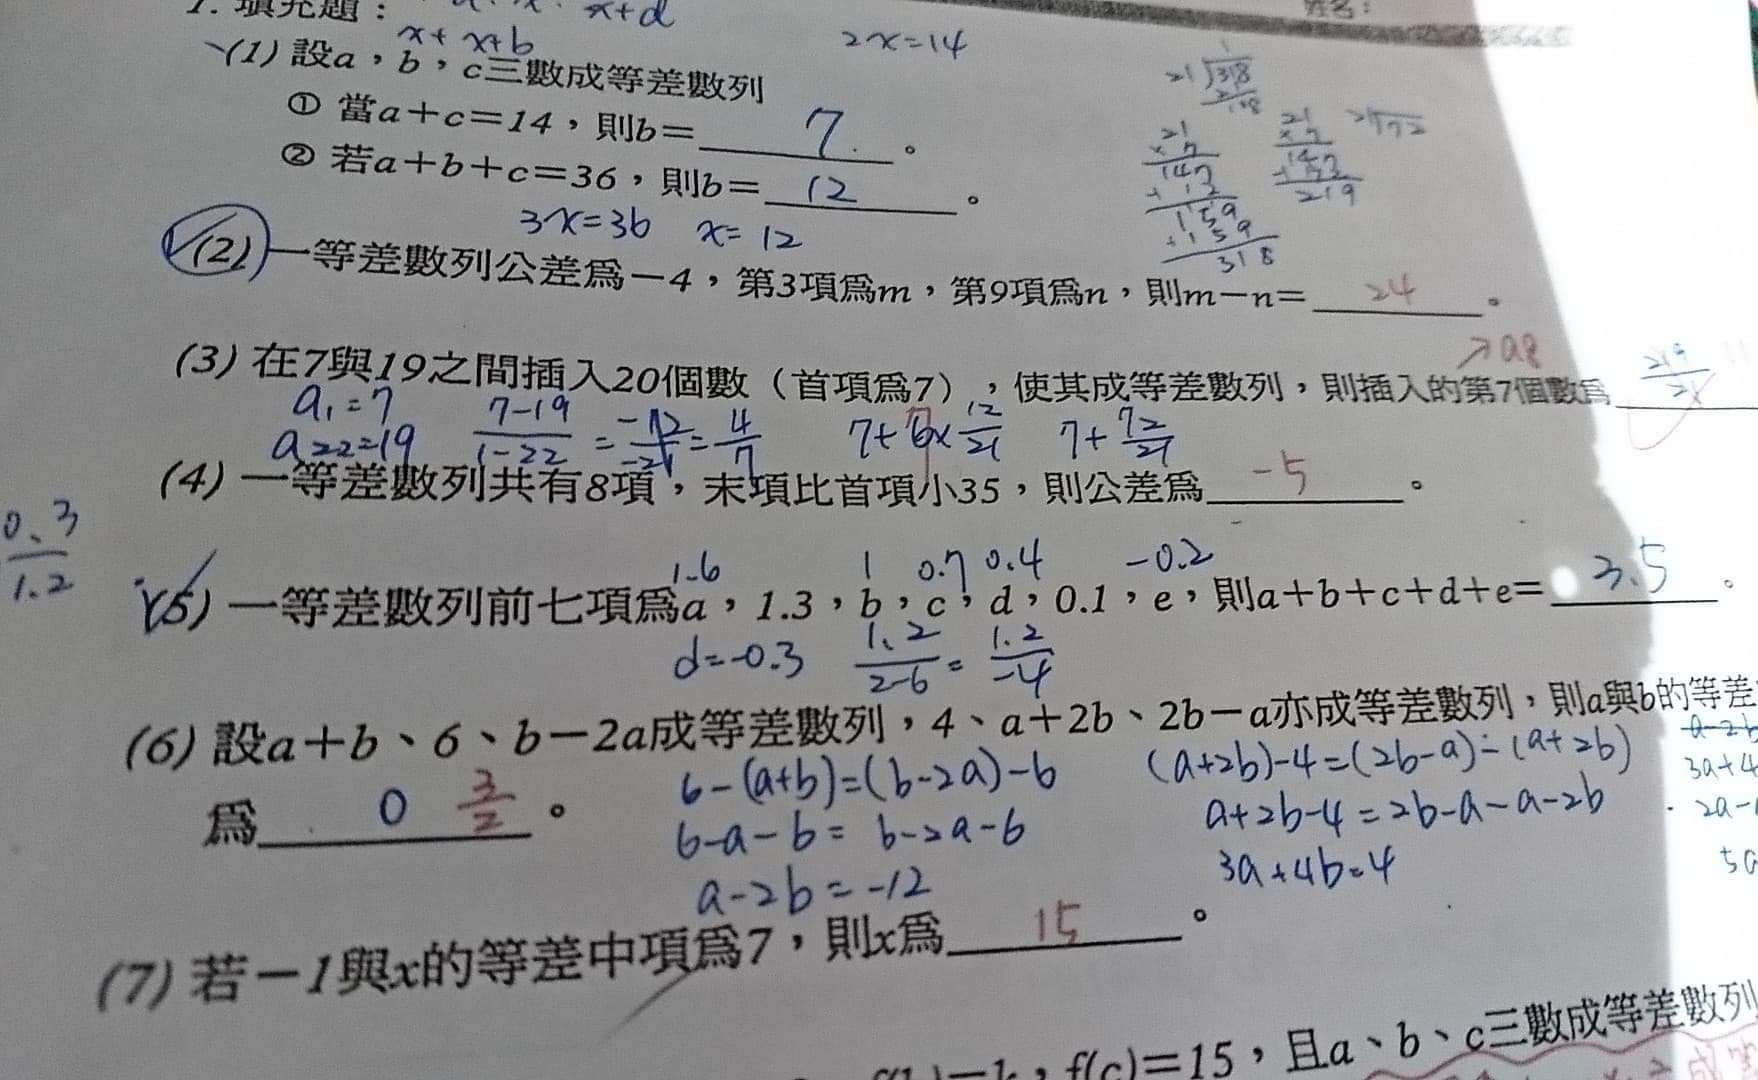 1. 填充題：
x+d
x+ x+b
2x=14
(1) 設a，b，c三數成等差數列
① 當a＋c＝14，則b＝ 7 。
② 若a＋b＋c＝36，則b＝ 12 。
3x=36 x=12
21 318
21
147
159
159
318
21
147
219
(2) 一等差數列公差為－4，第3項為m，第9項為n，則m－n＝ 24 。
(3) 在7與19之間插入20個數（首項為7），使其成等差數列，則插入的第7個數為
a8
219/21
a1=7
a22=19
7-19/1-22 = -12/-21 = 4/7
7+ 12/21
7+ 72/21
(4) 一等差數列共有8項，末項比首項小35，則公差為 -5 。
0.3/1.2
1.6 1 0.7 0.4 -0.2
(5) 一等差數列前七項為a，1.3，b，c，d，0.1，e，則a＋b＋c＋d＋e＝ 3.5 。
d=-0.3 1.2/2-6 = 1.2/-4
(6) 設a＋b、6、b－2a成等差數列，4、a＋2b、2b－a亦成等差數列，則a與b的等差
為 0 3/2 。
6-(a+b)=(b-2a)-6
6-a-b= b-2a-6
a-2b=-12
(a+2b)-4=(2b-a)-(a+2b)
a+2b-4=2b-a-a-2b
3a+4b=4
a-2b
3a+4
2a-
5a
(7) 若－1與x的等差中項為7，則x為 15 。
f(c)＝15，且a、b、c三數成等差數列